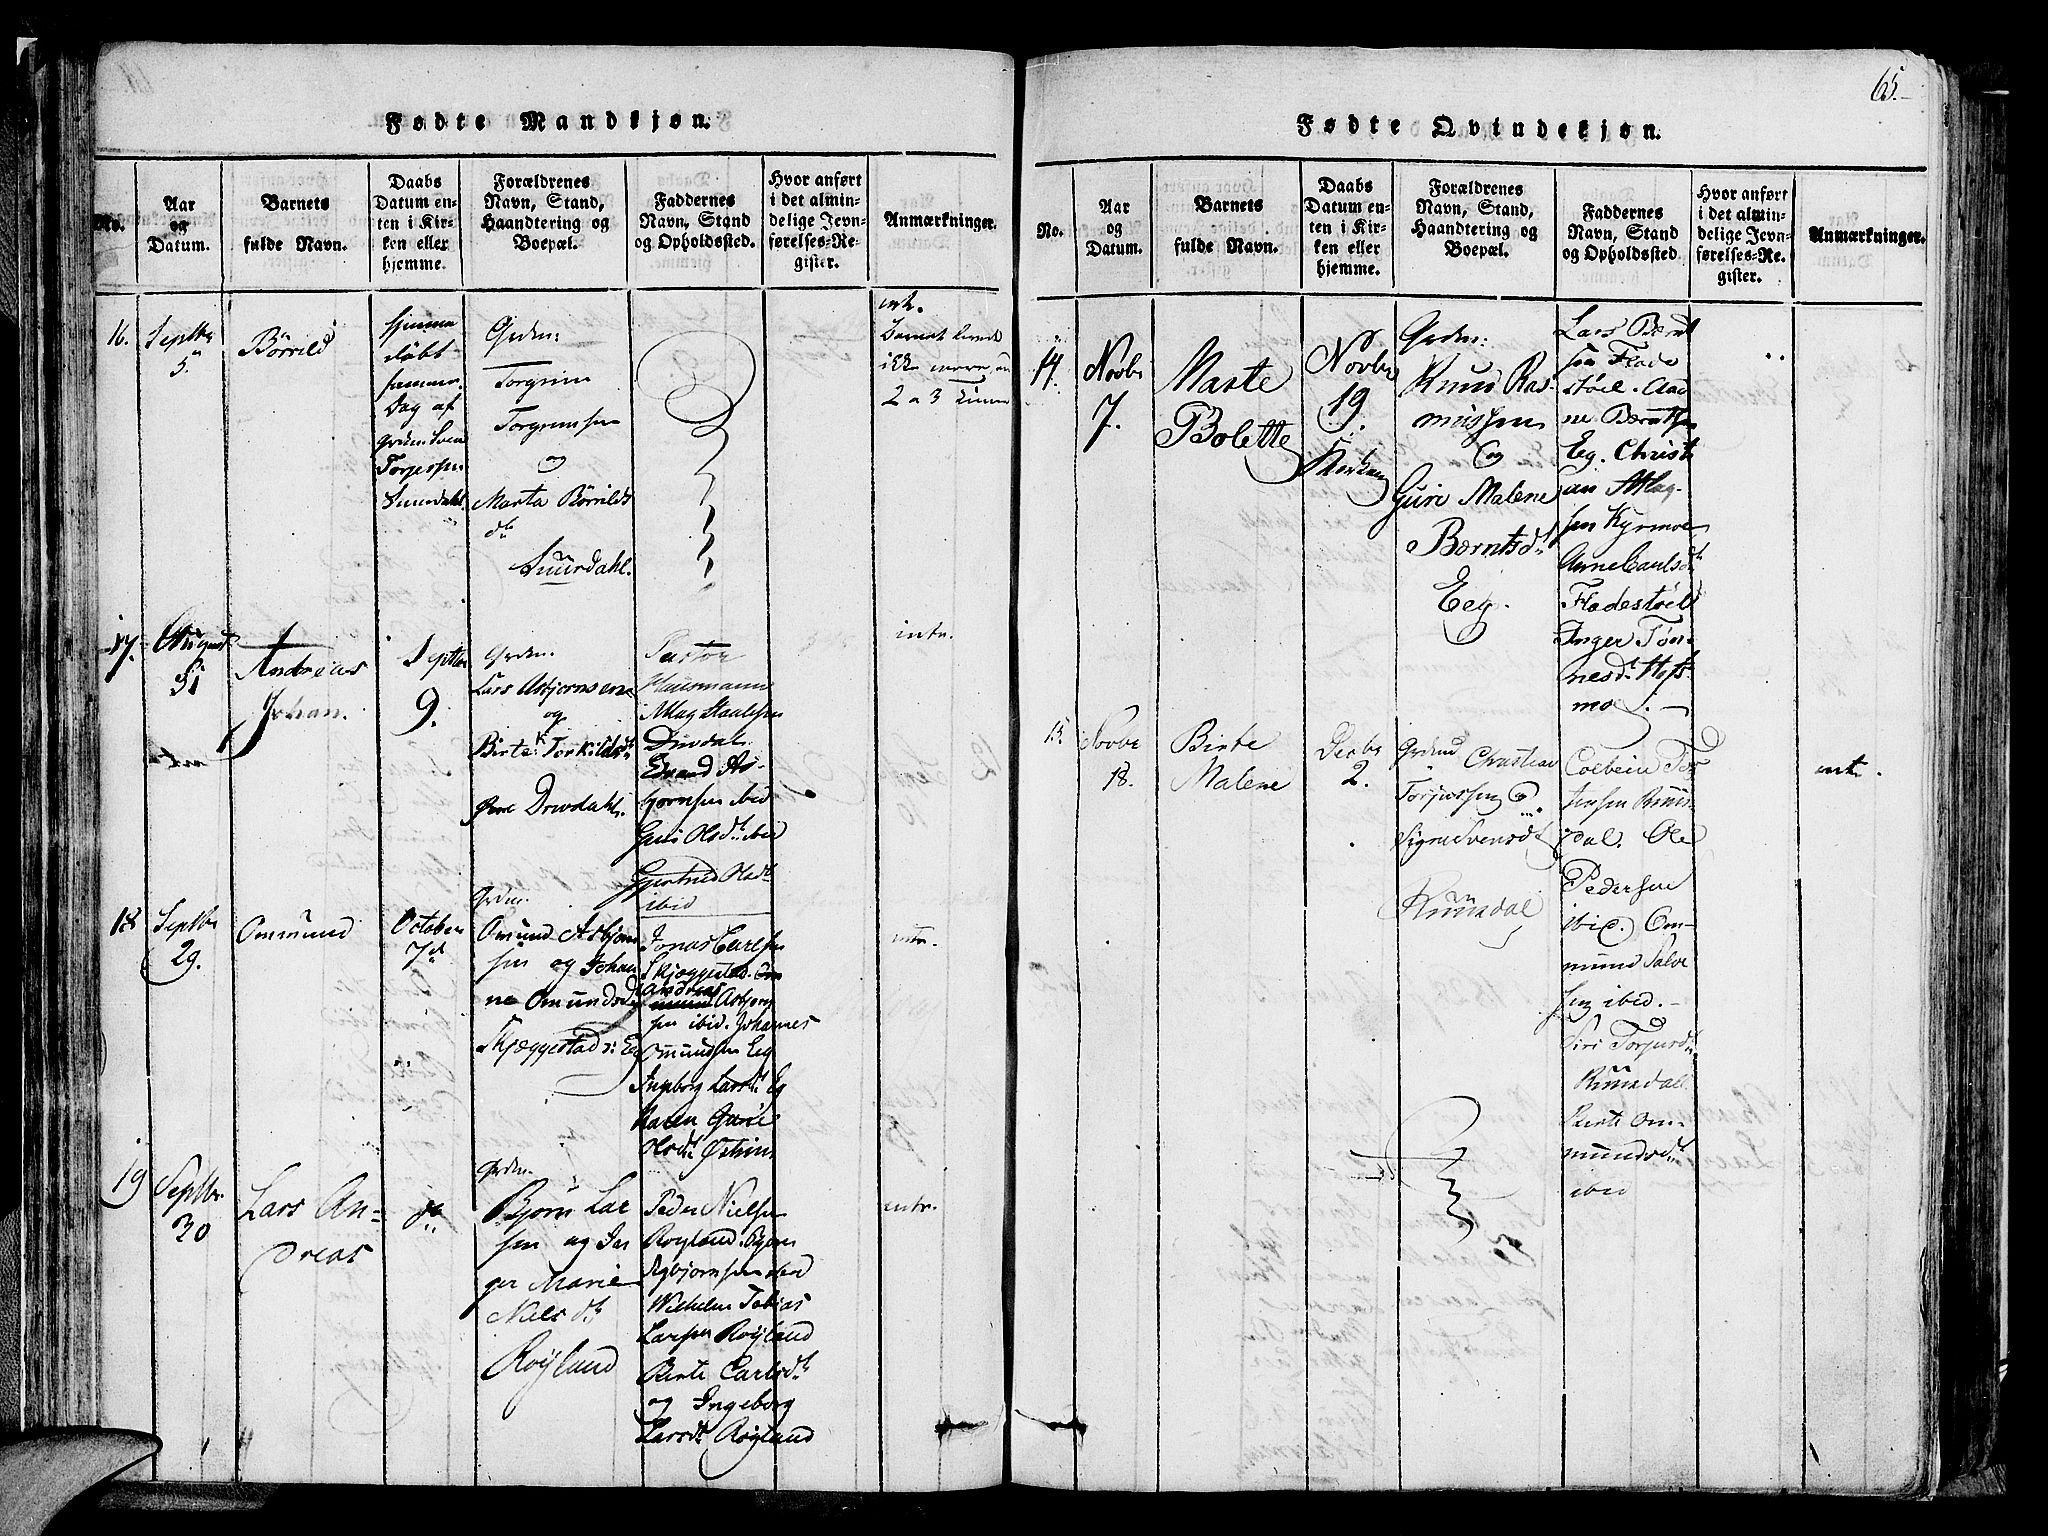 65.
Fødte Mandkjøn.
No.
Aar
og
Datum.
Barnets
fulde Navn.
Daabs
Datum en-
ten i Kir-
ken eller
hjemme.
Forældrenes
Navn, Stand,
Haandtering og
Boepæl.
Faddernes
Navn, Stand
og Opholdssted.
Hvor anført
i det almin-
delige Jevn-
førelses-Re-
gister.
Anmærkninger.
16.
Septbr
5.
Börrild
hjemme
döbt
samme
Dag af
Torjessen
Suurdahl.
Grdm:
Torgrim
Torgrimsen
og
Marta Börrilds
dtr
Suurdahl.
intr.
Barnet
ikke mere
2 a 3
17.
August
31
Andreas
Johan.
Septbr
9.
Grdm.
Lars Asbjørnsen
og
Birte Torkildsdtr
Drivdahl.
Pastor
Hausmann
Aslag Staalesen
Drivdal
Evand As-
bjørnsen ibid
Guri Olsdtr ibid
Gjertrud Olsdtr
ibid
intr.
18
Septbr
29.
Ommund
October
7d
Grdm.
Omund Asbjørn
sen og Johan
ne Omundsd
Skjæggestad: Eg
Jonas Carlsen
Skjæggestad. Om
Andreas
mund Asbjørn
sen ibid. Johannes
Omundsen Eeg
Ingeborg Larsdtr Eg
Karen Gurie
Olsdtr
intr.
19
Septbr.
30
Lars An=
dreas
do
Grdm.
Bjørn Lar
sen og In
ger Marie
Niels dtr
Røyland
Peder Nielsen
Røyland.
Asbjørnsen ibid
Wilhelm Tobias
Larsen Røyland
Berte Carlsdtr
og Ingeborg
Larsdtr Røyland
intr.
Fødte Qvindekjøn.
No.
Aar
og
Datum.
Barnets
fulde Navn.
Daabs
Datum en-
ten i Kir-
ken eller
hjemme.
Forældrenes
Navn, Stand,
Haandtering og
Boepæl.
Faddernes
Navn, Stand
og Opholdssted.
Hvor anført
i det almin-
delige Jevn-
førelses-Re-
gister.
Anmærkninger.
14.
Novbr
7.
Marte
Bolette
Novbr
19.
Kirken
Grdm:
Knud Ras
mussen
og
Guri Malene
Berntsdtr
Eeg.
Lars Bernt
sen Flade
støel. Aad
ne Berntsen
Eg. Christi
an Aslag-
sen Kyrmoe
Anne Carlsdtr
Fladestøel
Inger Tøn-
nesdtr Hofs
moe. -
15.
Novbr
18.
Birte
Malene
Decbr
2.
Grdmd
Christian
Torjussen og
Signe Svensdtr
Ruusdal
Colbein Tor
jussen Ruus
dal. Ole
Pedersen
ibid. Om-
mund Salve
sen ibid. -
Siri Torjusdtr
Ruusdal.
Berte Om-
mundsdtr
ibid
intr.